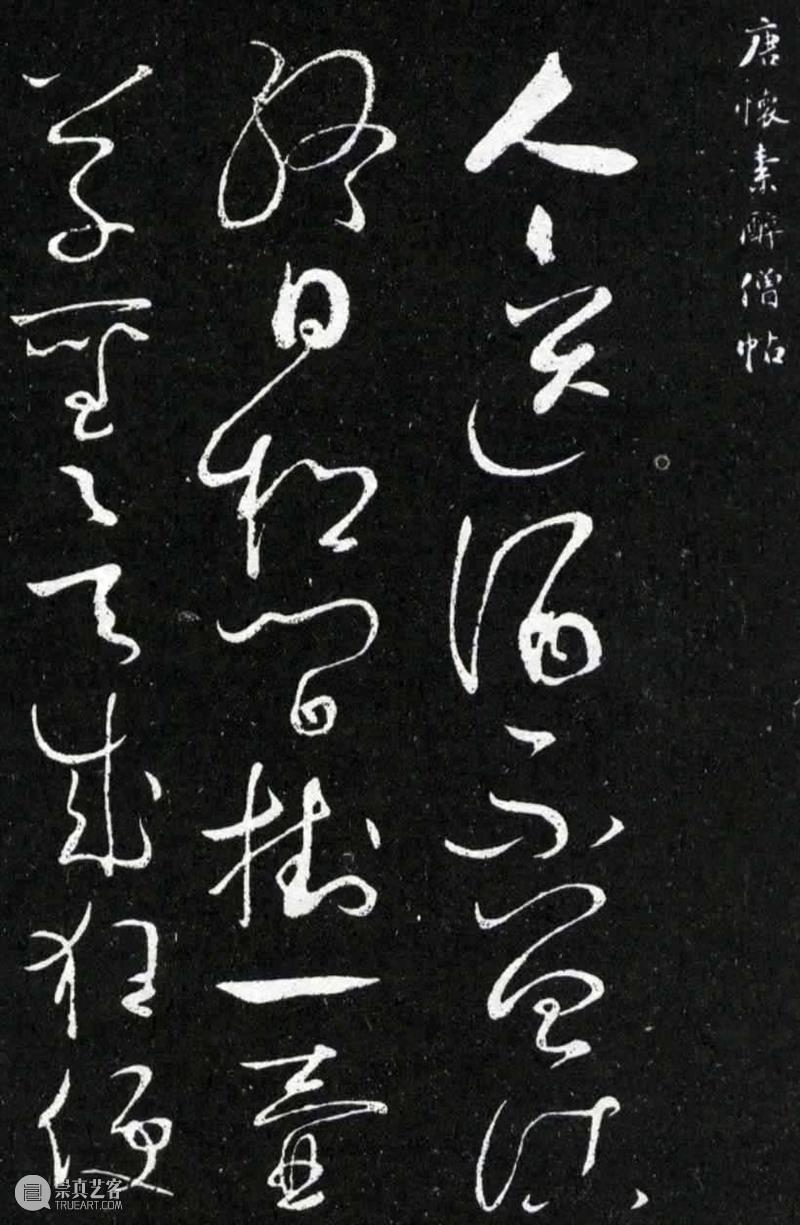 唐懷素醉僧帖
人人送酒不曾沽
終日松間掛一壺
草聖欲成狂便
崇真艺客
TRUEART.COM